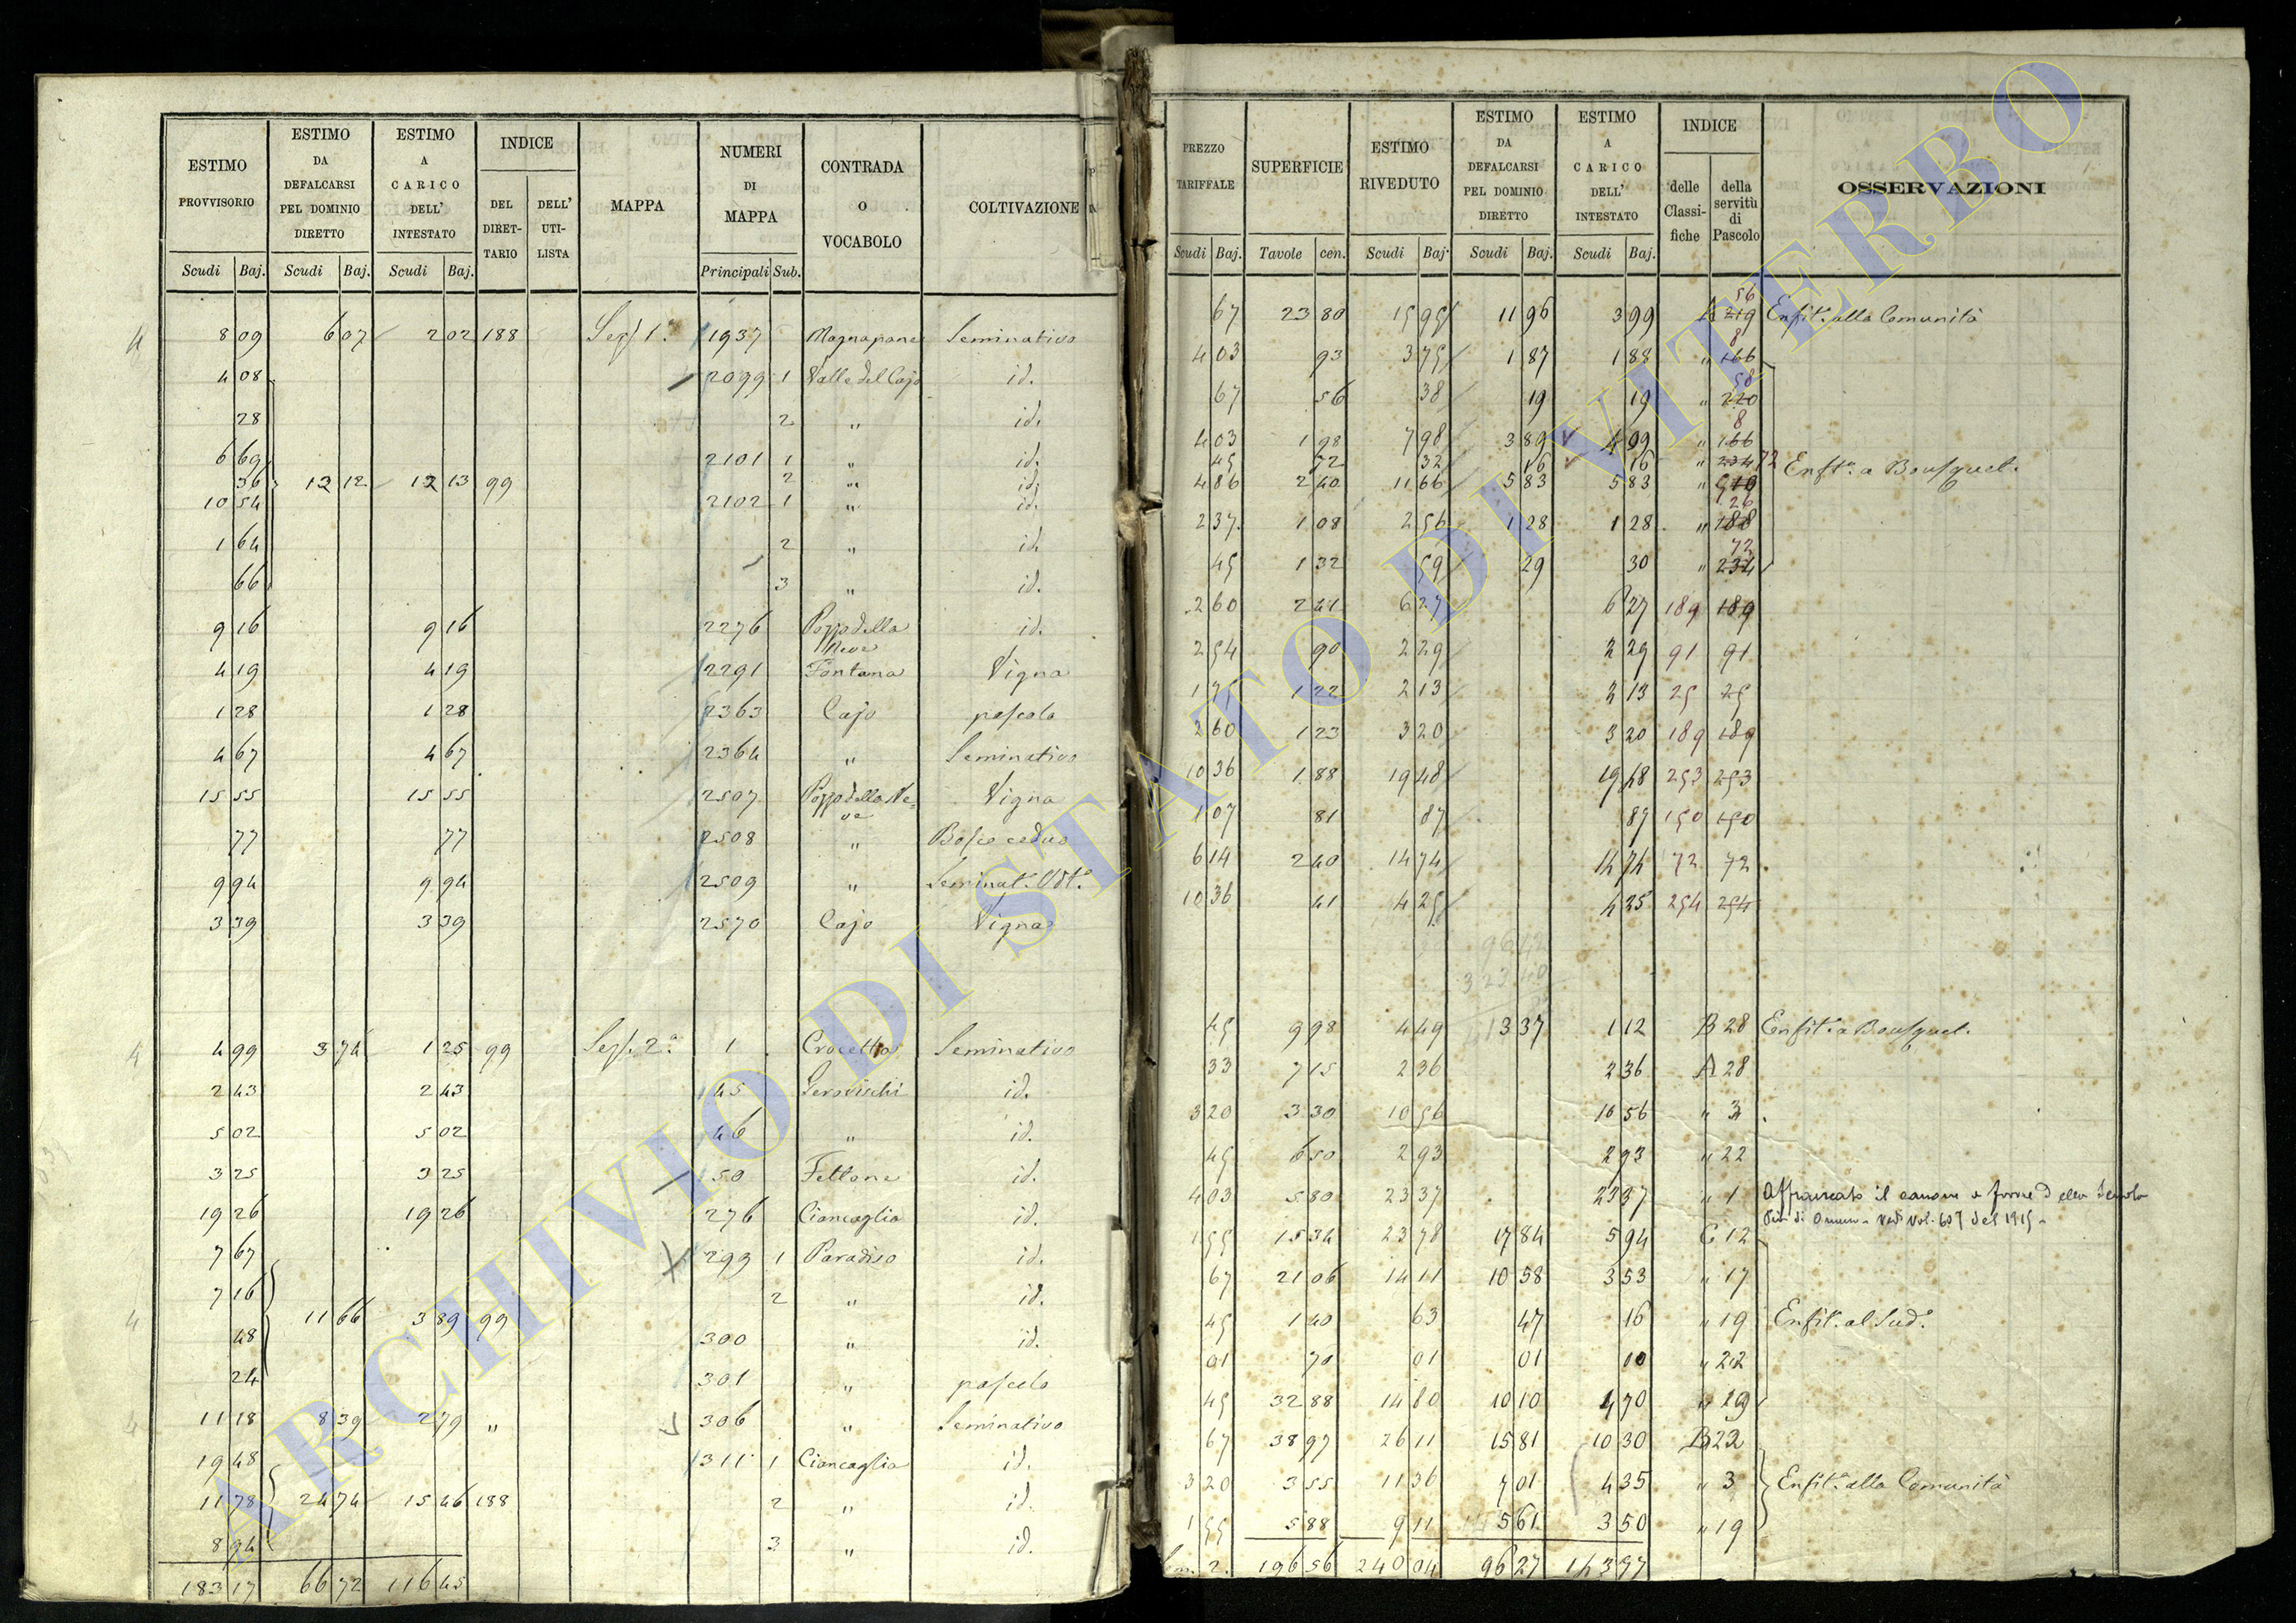 ESTIMO PROVVISORIO | ESTIMO DA DEFALCARSI PEL DOMINIO DIRETTO | ESTIMO A CARICO DELL' INTESTATO | INDICE | MAPPA | NUMERI DI MAPPA | CONTRADA O VOCABOLO | COLTIVAZIONE
DEL DIRETTARIO | DELL' UTILISTA
Scudi | Baj. | Scudi | Baj. | Scudi | Baj. | Principali | Sub.
4 8 09 6 07 2 02 188 Sez. 1.a 1937 Magnapane Seminativo
4 08 2099 1 Valle del Cajo id.
28 2 " id.
6 69 2101 1 " id.
36 12 12 12 13 99 2 " id.
10 54 2102 1 " id.
1 64 2 " id.
66 3 " id.
9 16 9 16 2276 Pozzo della Neve id.
4 19 4 19 2291 Fontana Vigna
1 28 1 28 2363 Cajo pascolo
4 67 4 67 2364 " Seminativo
15 55 15 55 2507 Pozzo della Neve Vigna
77 77 2508 " Bosco ceduo
9 94 9 94 2509 " Seminat. Vdt.
3 39 3 39 2570 Cajo Vigna
4 4 99 3 74 1 25 99 Sez. 2.a 1 Crocetta Seminativo
2 43 2 43 45 id.
5 02 5 02 46 " id.
3 25 3 25 50 Fettone id.
19 26 19 26 276 Ciancaglia id.
7 67 299 1 Paradiso id.
7 16 2 " id.
4 11 66 3 89 99
48 300 " id.
24 301 " pascolo
4 11 18 8 39 2 79 " 306 " Seminativo
19 48 311 1 Ciancaglia id.
11 78 24 74 15 46 188 2 " id.
8 94 3 " id.
183 17 66 72 116 45
PREZZO TARIFFALE | SUPERFICIE | ESTIMO RIVEDUTO | ESTIMO DA DEFALCARSI PEL DOMINIO DIRETTO | ESTIMO A CARICO DELL' INTESTATO | INDICE | OSSERVAZIONI
delle Classifiche | della servitù di Pascolo
Scudi | Baj. | Tavole | cen. | Scudi | Baj. | Scudi | Baj. | Scudi | Baj.
67 23 80 15 95 11 96 3 99 A 219 56 Enfit. alla Comunità
4 03 93 3 75 1 87 1 88 " 166 8
67 56 38 19 19 " 220 58
4 03 1 98 7 98 3 89 4 09 " 166 8
45 72 32 16 16 " 234 72 Enfit. a Bousquet.
4 86 2 40 11 66 5 83 5 83 "
2 37 1 08 2 56 1 28 1 28 " 188 26
45 1 32 59 29 30 " 234 72
2 60 2 41 6 27 6 27 189 189
2 54 90 2 29 2 29 91 91
1 75 1 22 2 13 2 13 25 25
2 60 1 23 3 20 3 20 189 189
10 36 1 88 19 48 19 48 253 253
1 07 81 87 87 150 150
6 14 2 40 14 74 14 74 72 72
10 36 41 4 25 4 25 254 254
45 9 98 4 49 3 37 1 12 B 28 Enfit. a Bousquet.
33 7 15 2 36 2 36 A 28
3 20 3 30 10 56 10 56 " 3
45 6 50 2 93 2 93 " 22
4 03 5 80 23 37 23 37 " 1 Affrancato il canone a forma della
vedi Vol. 607 del 1915
1 55 15 34 23 78 17 84 5 94 C 12
67 21 06 14 11 10 58 3 53 " 17
45 1 40 63 47 16 " 19 Enfit. al Sud.
01 70 01 01 00 " 22
45 32 88 14 80 10 10 4 70 " 19
67 38 97 26 11 15 81 10 30 B 22
3 20 3 55 11 36 7 01 4 35 " 3 Enfit. alla Comunità
1 55 5 88 9 11 5 61 3 50 " 19
196 56 240 04 96 27 143 97
ARCHIVIO DI STATO DI VITERBO